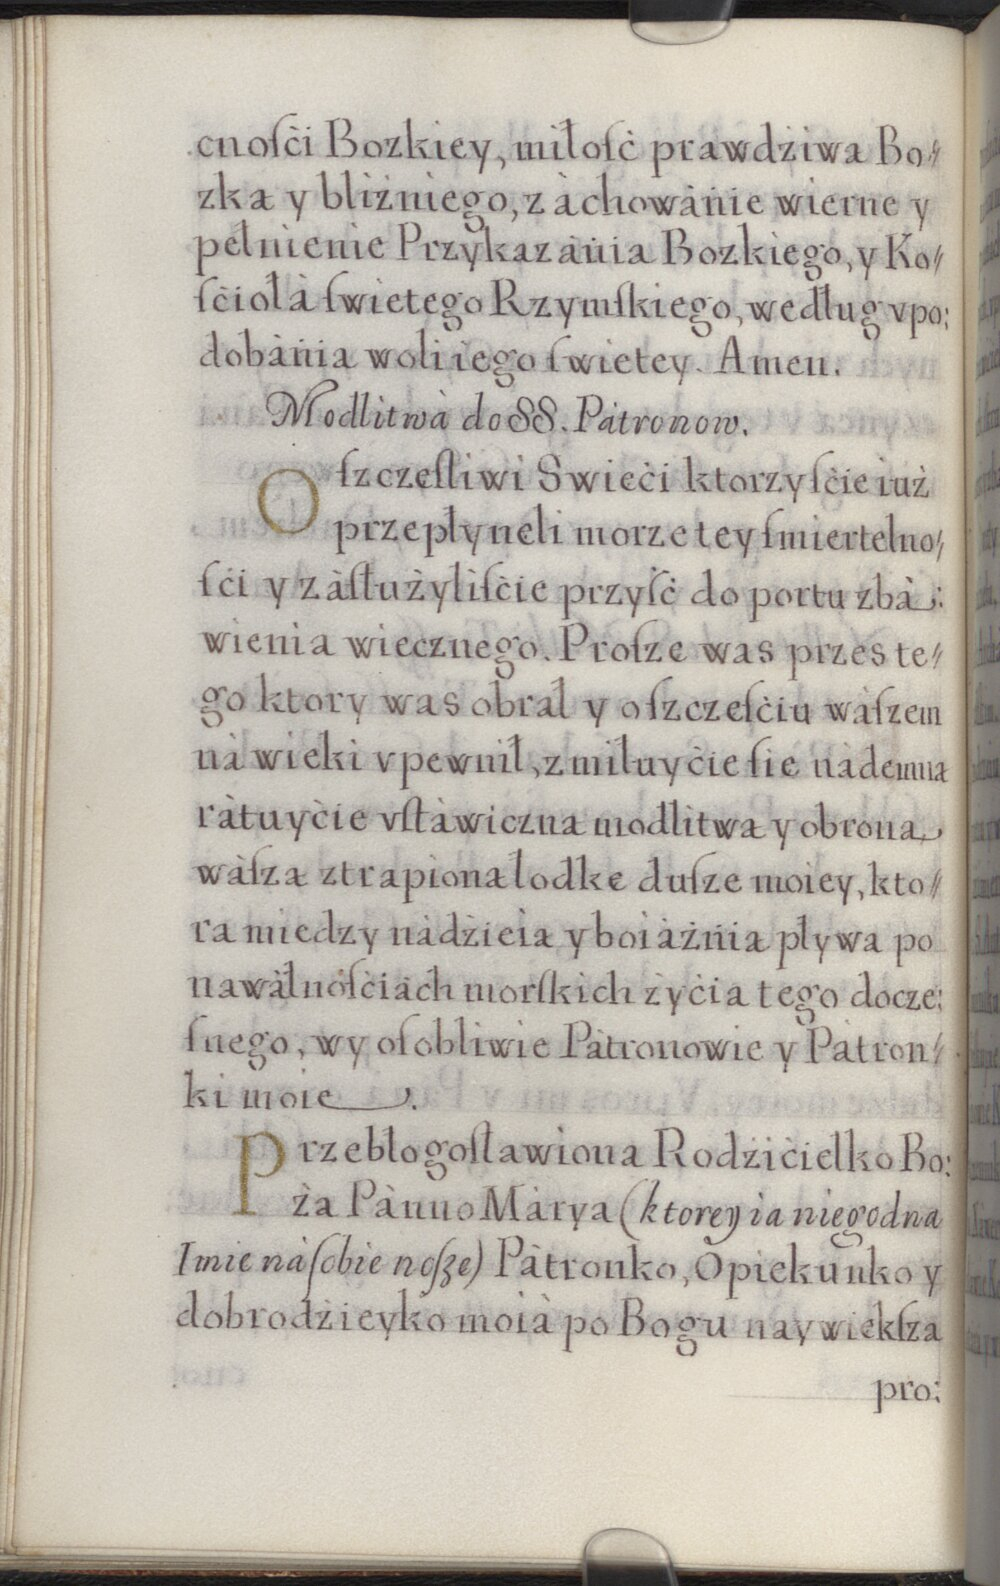 cnośċi Bozkiey, miłoſċ prawdżiwa Bo⸗
zka y bliżniego, zàchowànie wierne y
pełnienie Przykazània Bozkiego, y Ko⸗
ſċiołà ſwietego Rzymſkiego, według vpo:
dobània woli iego ſwietey. Amen.
Modlitwà do SS. Pàtronow.
O ſzczeſliwi Swieċi ktorzyſċie iuż
przepłyneli morze tey ſmiertelno⸗
ſċi y zàſłużyliſċie przyſċ do portu zbà:
wienia wiecznego. Proſze was przes te⸗
go ktory was obrał y o ſzczeſċiu wàſzem
nà wieki vpewnił, zmiłuyċie ſie nàdemna
ràtuyċie vſtàwiczna modlitwa y obrona
wàſza ztrapiona łodke duſze moiey, kto⸗
ra miedzy nàdżieia y boiàżńia pływa po
nawàłnoſċiàch morſkich żyċia tego docze:
ſnego, wy oſobliwie Pàtronowie y Pàtron⸗
ki moie.
Przebłogoſławiona Rodżiċielko Bo:
ża Pànno Màrya (ktorey ia niegodna
Imie nà ſobie noſze) Pàtronko, Opiekunko y
dobrodżieyko moià po Bogu naywiekſza
pro: